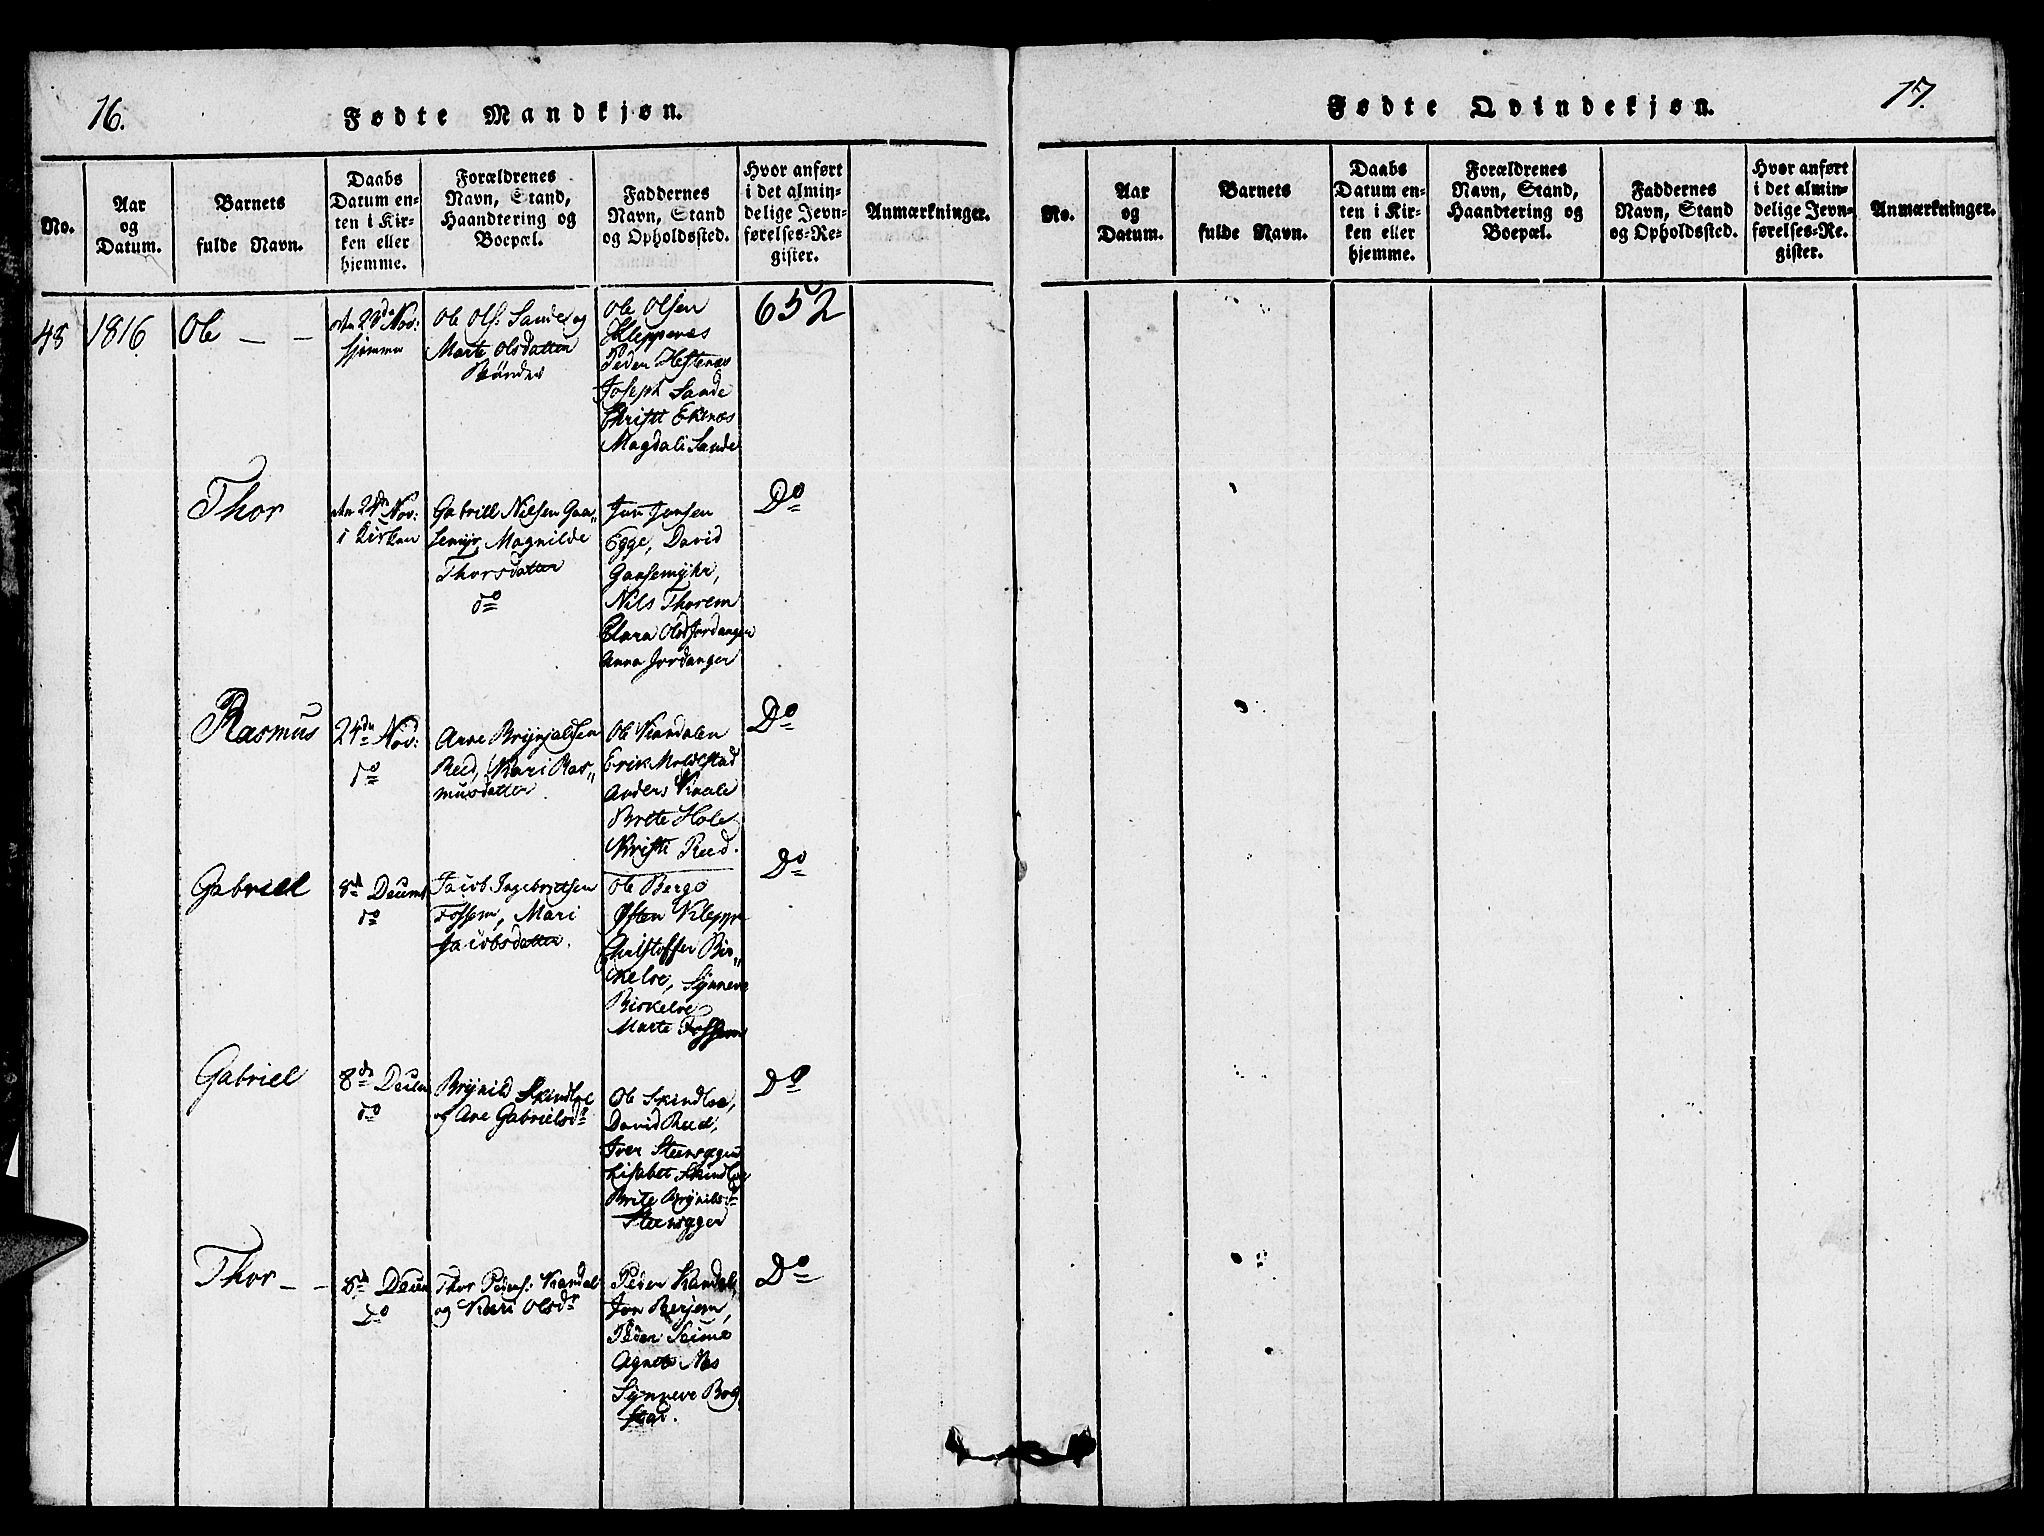 16.
Fødte Mandkjøn.
No.
Aar
og
Datum.
Barnets
fulde Navn.
Daabs
Datum en-
ten i Kir-
ken eller
hjemme.
Forældrenes
Navn, Stand,
Haandtering og
Boepæl.
Faddernes
Navn, Stand
og Opholdssted.
Hvor anført
i det almin-
delige Jevn-
førelses-Re-
gister.
Anmærkninger.
48
1816
Ole - -
den 20de Nov:
hjemme
Ole Ols: Sande og
Marte Olsdatter
Bønder
Ole Olsen
Kleppenes
Peder Hestenæs
Joseph Sande
Christi Ekenæs
Magdali Sande
652
Thor
den 24de Nov:
i Kirken
Gabriel Nilsen Gaa„
semyr, Magnilde
Thorsdatter
do
Jon Jonsen
Egge, David
Gaasemyhr,
Nils Thorem
Clara Olsd Jordanger
Anna Jordanger
Do
Rasmus
24de Nov:
do
Arne Brynjalsen
Reed, Kari Ras„
musdatter
Ole Kandalen
Erik Moldestad
Anders Kaale
Brete Hole
Kristi Reed.
Do
Gabriel
8de Decemb
do
Jacob Ingebretsen
Fossem, Mari
Jacobsdatter.
Ole Berge
Østen Kleppe
Christoffer Bir„
kelo, Synneve
Birkeloe
Marte Fossem
Do
Gabriel
8de Decem
do
Brynild Skindloe
og Ane Gabrielsdr
Ole Skindloe,
David Reed,
Iver Steensæggen
Lisabet Skindloe
Brite Brynilsdr
Steensæggen
Do
Thor - -
8de Decem
Do
Thor Peders: Kandal
og Kari Olsdr
Peder Kandal,
Jon Berjem,
Peder Seime
Agnete Næs
Synneve Bog
stad.
Do
17.
Fødte Qvindekjøn.
No.
Aar
og
Datum.
Barnets
fulde Navn.
Daabs
Datum en-
ten i Kir-
ken eller
hjemme.
Forældrenes
Navn, Stand,
Haandtering og
Boepæl.
Faddernes
Navn, Stand
og Opholdssted.
Hvor anført
i det almin-
delige Jevn-
førelses-Re-
gister.
Anmærkninger.